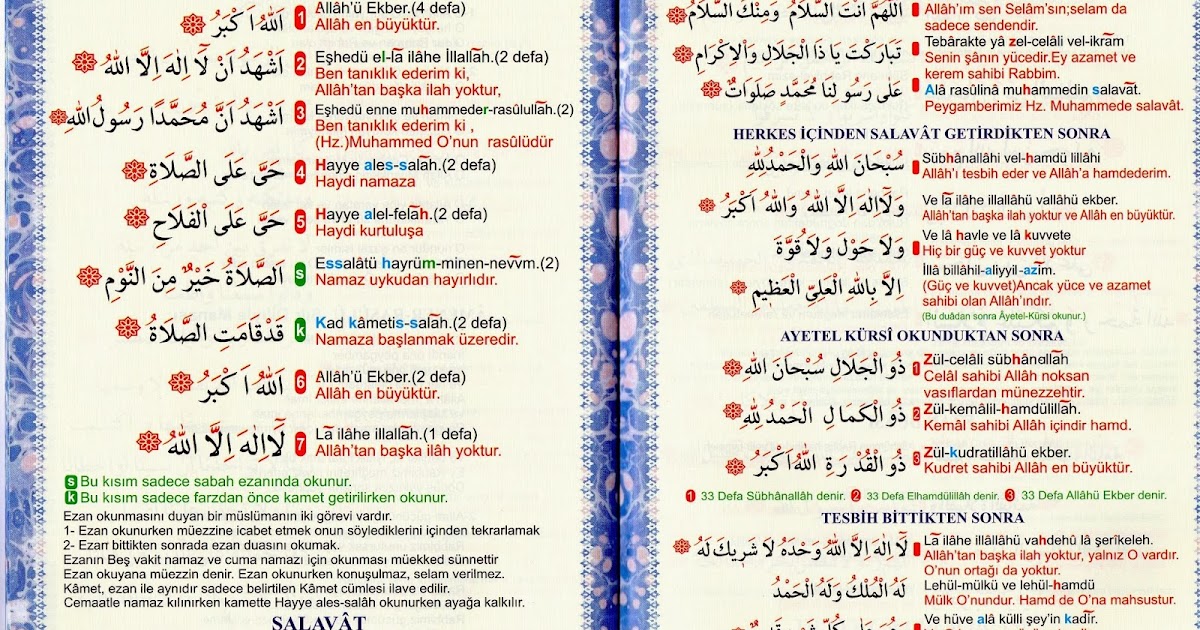 اَللّٰهُ اَكْبَرُ
1 Allâh’ü Ekber.(4 defa)
Allâh en büyüktür.
اَشْهَدُ اَنْ لَٓا اِلٰهَ اِلَّا اللّٰهُ
2 Eşhedü el-lâ ilâhe İllallah.(2 defa)
Ben tanıklık ederim ki,
Allâh’tan başka ilah yoktur,
اَشْهَدُ اَنَّ مُحَمَّدًا رَسُولُ اللّٰهِ
3 Eşhedü enne muhammeder-rasûlullah.(2)
Ben tanıklık ederim ki ,
(Hz.)Muhammed O’nun rasûlüdür
حَىَّ عَلَى الصَّلَاةِ
4 Hayye ales-salah.(2 defa)
Haydi namaza
حَىَّ عَلَى اْلفَلَاحِ
5 Hayye alel-felah.(2 defa)
Haydi kurtuluşa
اَلصَّلَاةُ خَيْرٌ مِنَ النَّوْمِ
s Essalâtü hayrüm-minen-nevvm.(2)
Namaz uykudan hayırlıdır.
قَدْقَامَتِ الصَّلَاةُ
k Kad kâmetis-salah.(2 defa)
Namaza başlanmak üzeredir.
اَللّٰهُ اَكْبَرُ
6 Allâh’ü Ekber.(2 defa)
Allâh en büyüktür.
لَٓااِلٰهَ اِلَّا اللّٰهُ
7 Lâ ilâhe illallah.(1 defa)
Allâh’tan başka ilâh yoktur.
s Bu kısım sadece sabah ezanında okunur.
k Bu kısım sadece farzdan önce kamet getirilirken okunur.
Ezan okunmasını duyan bir müslümanın iki görevi vardır.
1- Ezan okunurken müezzine icabet etmek onun söylediklerini içinden tekrarlamak
2- Ezan bittikten sonrada ezan duasını okumak.
Ezanın Beş vakit namaz ve cuma namazı için okunması müekked sünnettir
Ezan okuyana müezzin denir. Ezan okunurken konuşulmaz, selam verilmez.
Kâmet, ezan ile aynıdır sadece belirtilen Kâmet cümlesi ilave edilir.
Cemaatle namaz kılınırken kamette Hayye ales-salâh okunurken ayağa kalkılır.
SALAVÂT
اَللّٰهُمَّ اَنْتَ السَّلَامُ وَمِنْكَ السَّلَامُ
Allâh’ım sen Selâm’sın;selam da
sadece sendendir.
تَبَارَكْتَ يَا ذَا الْجَلَالِ وَالْاِكْرَامِ
Tebârakte yâ zel-celâli vel-ikram
Senin şânın yücedir.Ey azamet ve
kerem sahibi Rabbim.
عَلٰى رَسُولِنَا مُحَمَّدٍ صَلَوَاتٌ
Alâ rasûlinâ muhammedin salavat.
Peygamberimiz Hz. Muhammede salavât.
HERKES İÇİNDEN SALAVÂT GETİRDİKTEN SONRA
سُبْحَانَ اللّٰهِ وَالْحَمْدُلِلّٰهِ
Sübhânallâhi vel-hamdü lillâhi
Allâh’ı tesbih eder ve Allâh’a hamdederim.
وَلَٓااِلٰهَ اِلَّا اللّٰهُ وَاللّٰهُ اَكْبَرُ
Ve lâ ilâhe illallâhü vallâhü ekber.
Allâh’tan başka ilah yoktur ve Allâh en büyüktür.
وَلَا حَوْلَ وَلَا قُوَّةَ
Ve lâ havle ve lâ kuvvete
Hiç bir güç ve kuvvet yoktur
اِلَّا بِاللّٰهِ الْعَلِىِّ الْعَظِيمِ
İllâ billâhil-aliyyil-azim.
(Güç ve kuvvet)Ancak yüce ve azamet
sahibi olan Allâh’ındır.
(Bu duâdan sonra Âyetel-Kürsi okunur.)
AYETEL KÜRSÎ OKUNDUKTAN SONRA
ذُو الْجَلَالِ سُبْحَانَ اللّٰهِ
1 Zül-celâli sübhânellah
Celâl sahibi Allâh noksan
vasıflardan münezzehtir.
ذُو الْكَمَالِ اَلْحَمْدُ لِلّٰهِ
2 Zül-kemâlil-hamdülillah.
Kemâl sahibi Allâh içindir hamd.
ذُو الْقُدْرَةِ اَللّٰهُ اَكْبَرُ
3 Zül-kudratillahü ekber.
Kudret sahibi Allâh en büyüktür.
1 33 Defa Sübhânallâh denir. 2 33 Defa Elhamdülillâh denir. 3 33 Defa Allâhü Ekber denir.
TESBİH BİTTİKTEN SONRA
لَٓا اِلٰهَ اِلَّا اللّٰهُ وَحْدَهُ لَا شَرِيكَ لَهُ
Lâ ilâhe illâllâhü vahdehû lâ şerîkeleh.
Allâh’tan başka ilah yoktur, yalnız O vardır.
O’nun ortağı da yoktur.
لَهُ الْمُلْكُ وَلَهُ الْحَمْدُ
Lehül-mülkü ve lehül-hamdü
Mülk O’nundur. Hamd de O’na mahsustur.
Ve hüve alâ külli şey’in kadîr.